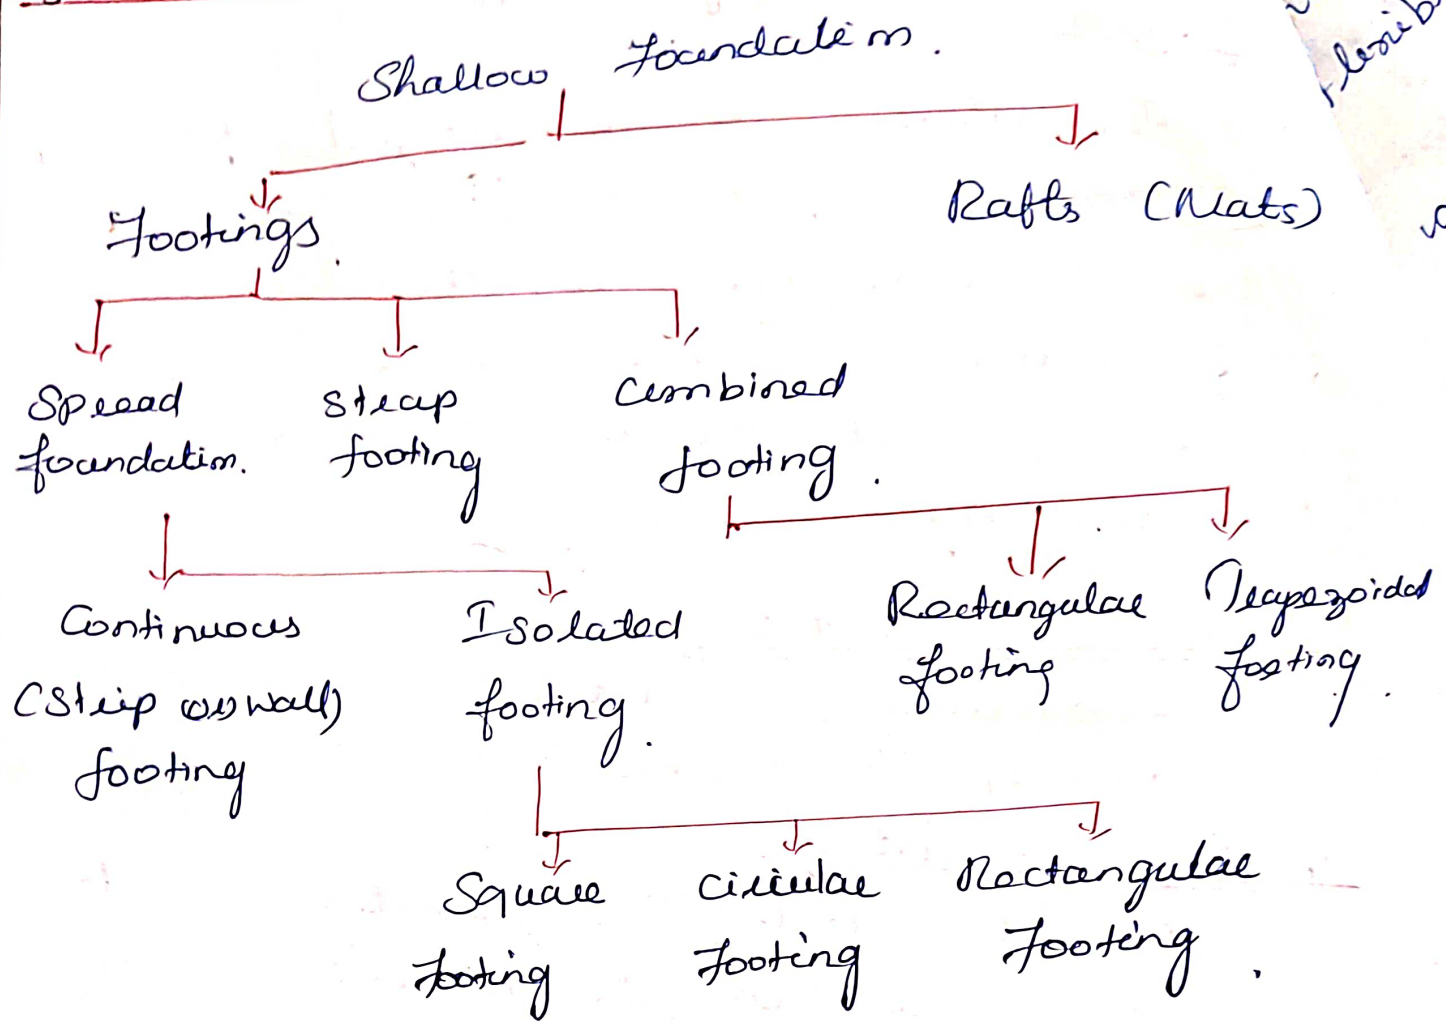 Shallow Foundation.
Footings.
Rafts (Mats)
Spread
foundation.
Strap
footing
Combined
footing.
Continuous
(Strip (or) wall)
footing
Isolated
footing.
Rectangular
footing
Trapezoidal
footing.
Square
Footing
Circular
Footing
Rectangular
Footing.